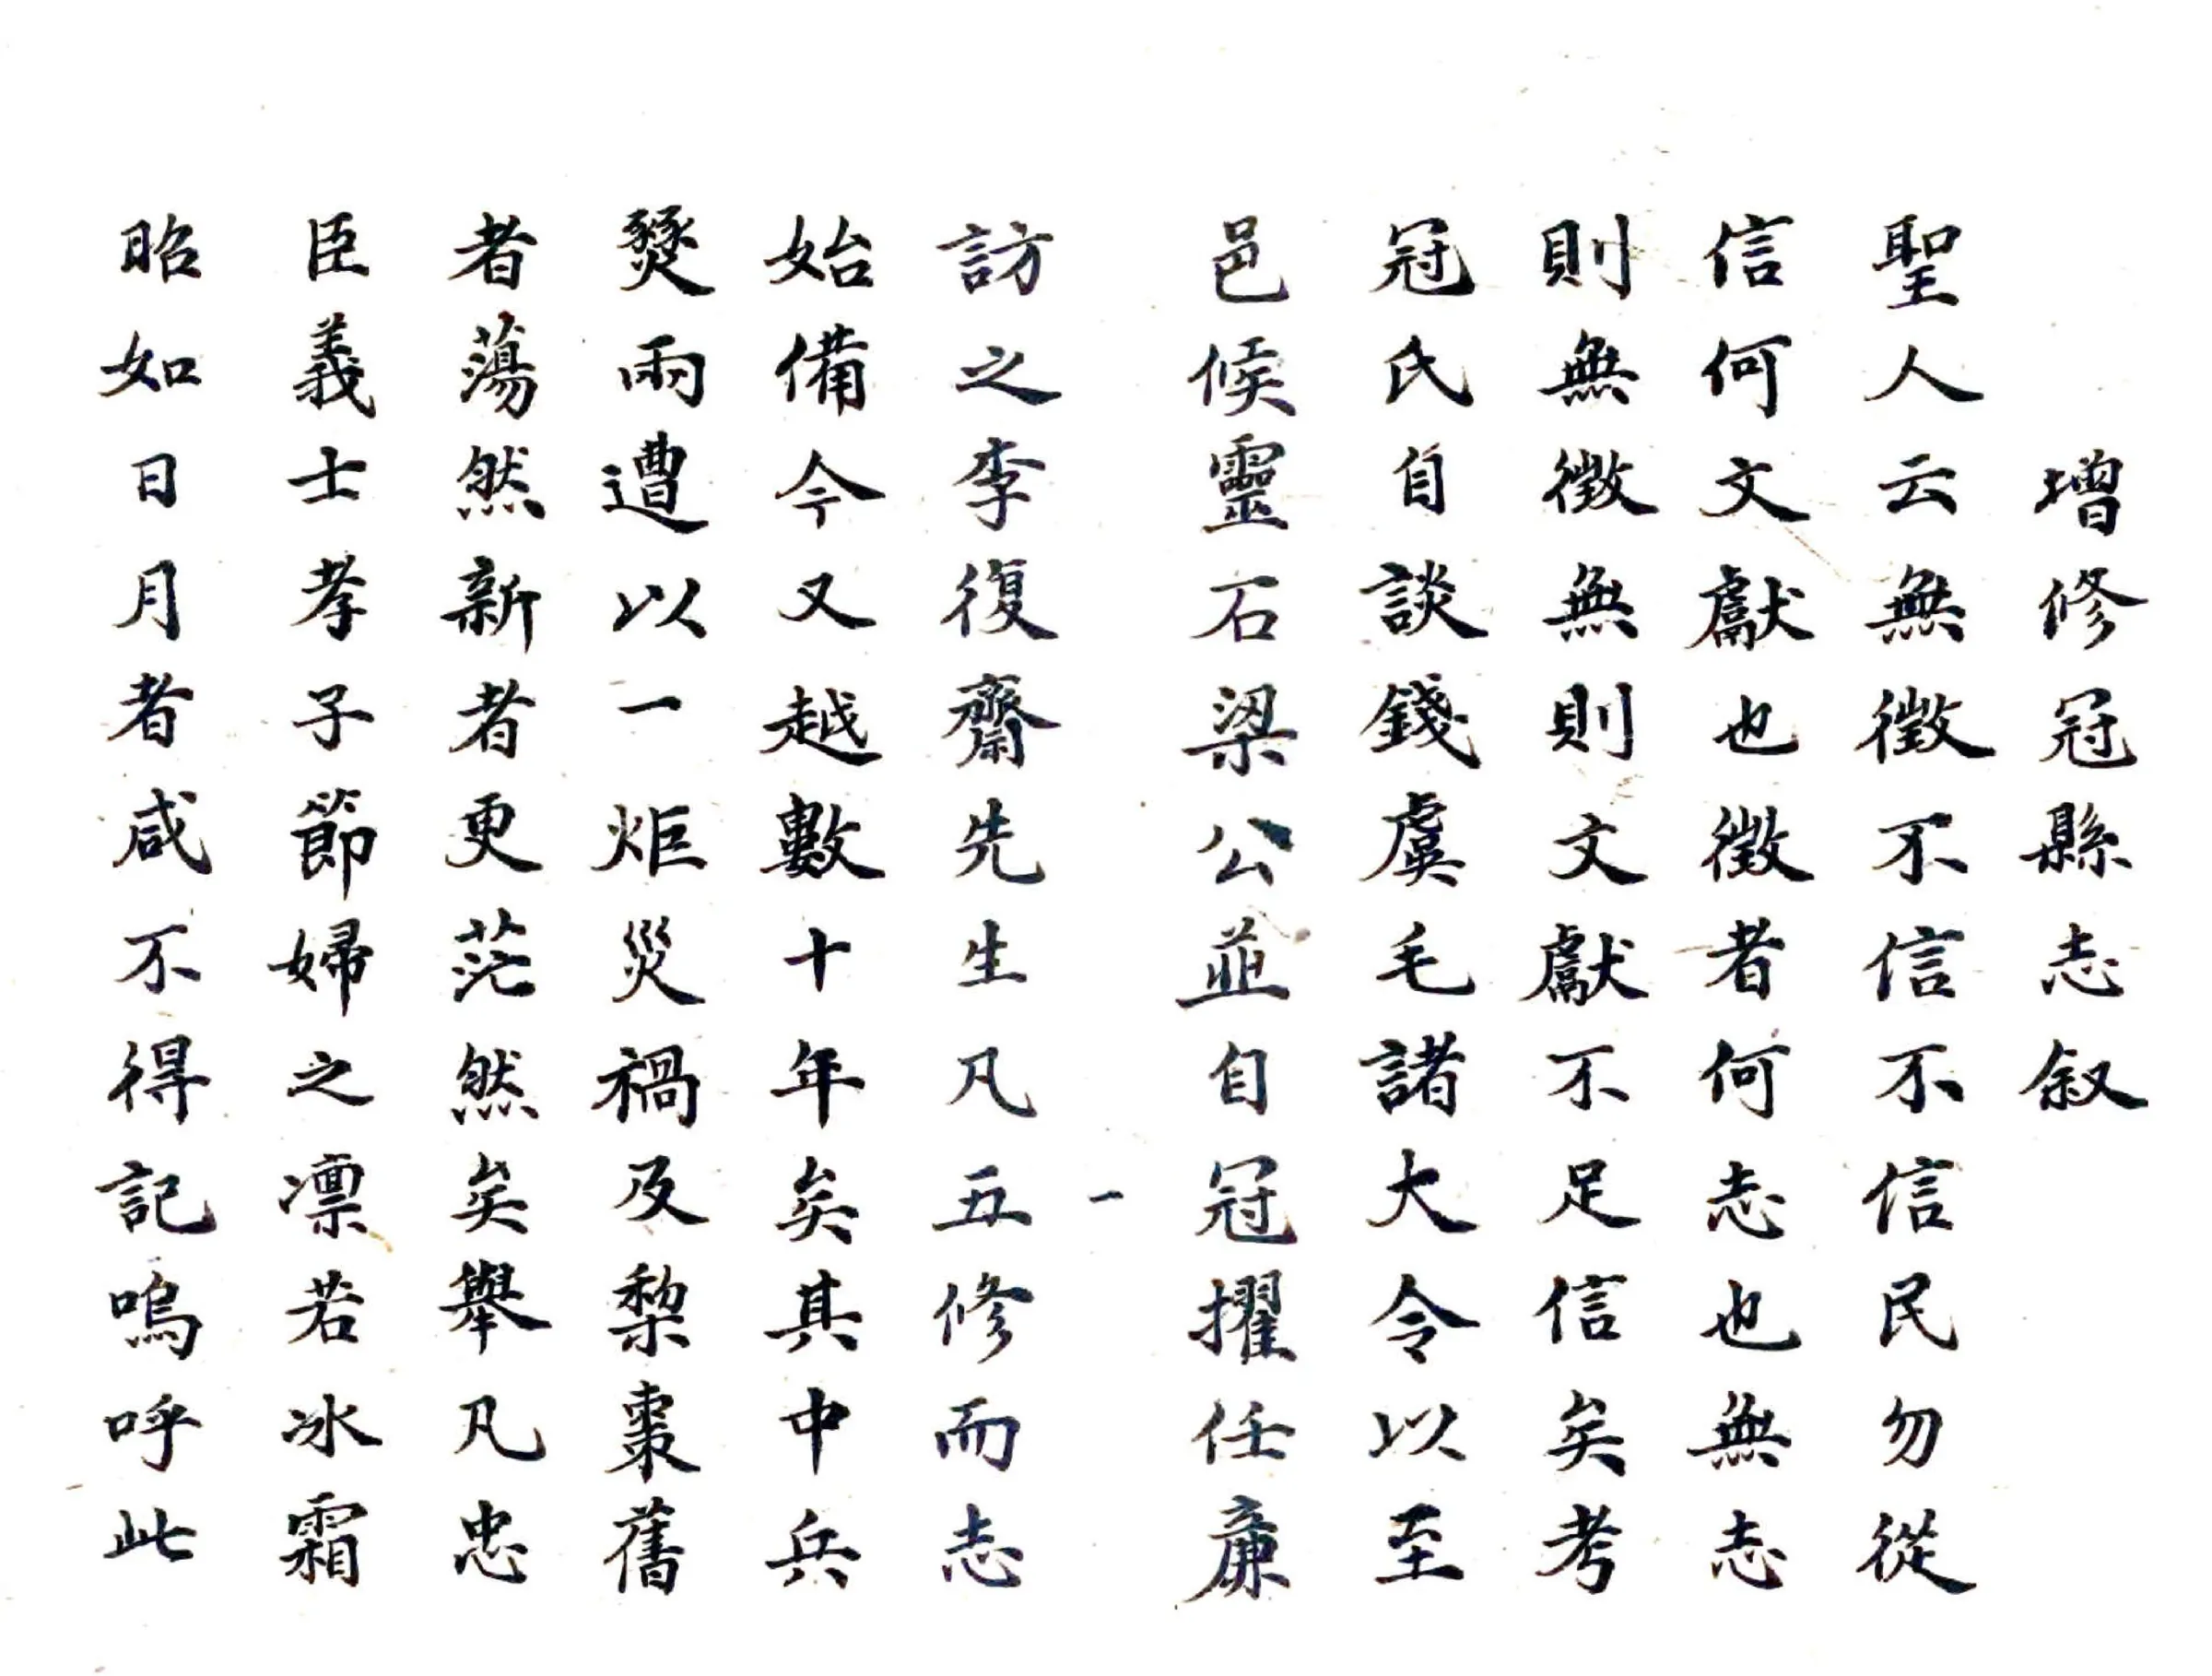 增修冠縣志叙
聖人云無徵不信不信民勿從
信何文獻也徵者何志也無志
則無徵無則文獻不足信矣考
冠氏自談錢虞毛諸大令以至
邑候靈石梁公並自冠擢任廉
一
訪之李復齋先生凡五修而志
始備今又越數十年矣其中兵
燹雨遭以一炬災禍及棃棗舊
者蕩然新者更茫然矣舉凡忠
臣義士孝子節婦之凛若冰霜
昭如日月者咸不得記嗚呼此